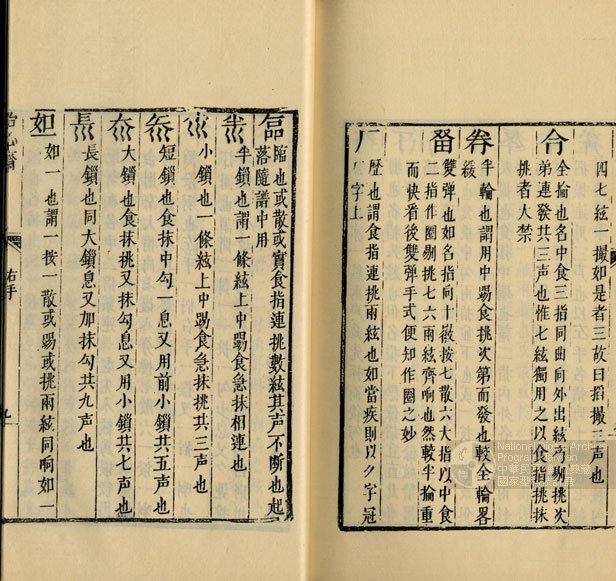 四七絃一撮如是者三故曰搯撮三声也
合
全掄也名中食三指同曲向外出絃音剔挑次
弟連發共三声也惟七絃獨用之以食指挑抹
挑者人禁
半輪也謂用中踢食挑次第而發也較全輪畧
緩
雙弹也如名指向十徽按七散六大指以中食
二指作圈剔挑七六兩絃齊响也然較半掄重
而快看後雙弹手式便知作圈之妙
厂
歷也謂食指連挑兩絃也如當疾則以⺈字冠
字上
臨也或散或實食指連挑數絃其声不断也起
落隨譜中用
半鎖也謂一條絃上中踢食急抹相連也
小鎖也一條絃上中踢食急抹挑共三声也
短鎖也食抹中勾一息又用前小鎖共五声也
大鎖也食抹挑又抹勾息又用小鎖共七声也
長鎖也同大鎖息又加抹勾共九声也
如一也謂一按一散或踢或挑兩絃同响如一
右手
National
Program
國家型